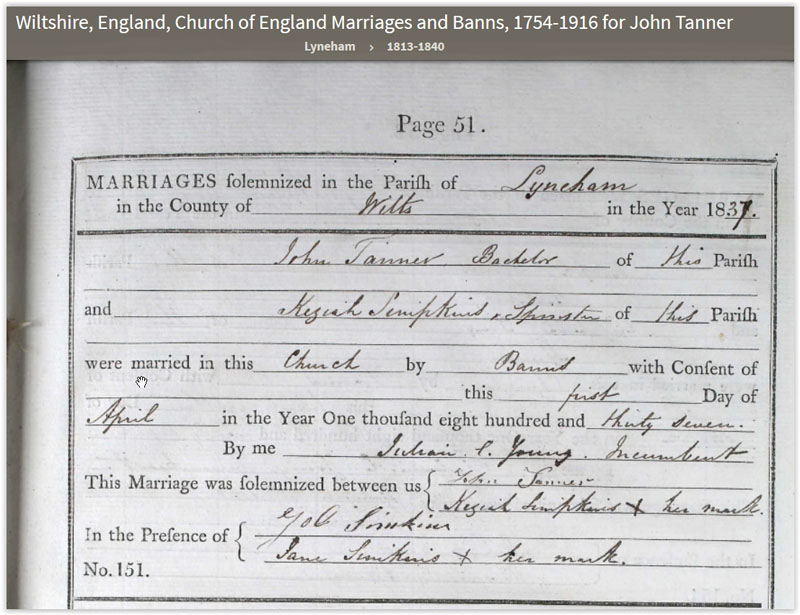 Wiltshire, England, Church of England Marriages and Banns, 1754-1916 for John Tanner
Lyneham › 1813-1840
Page 51.
MARRIAGES solemnized in the Parish of Lyneham
in the County of Wilts in the Year 1837.
John Tanner Bachelor of this Parish
and Keziah Simpkins, Spinster of this Parish
were married in this Church by Banns with Consent of
this first Day of
April in the Year One thousand eight hundred and thirty seven.
By me Julian C. Young. Incumbent
This Marriage was solemnized between us { John Tanner
Keziah Simpkins X her mark.
In the Presence of { Simkins
Jane Simkins X her mark.
No. 151.